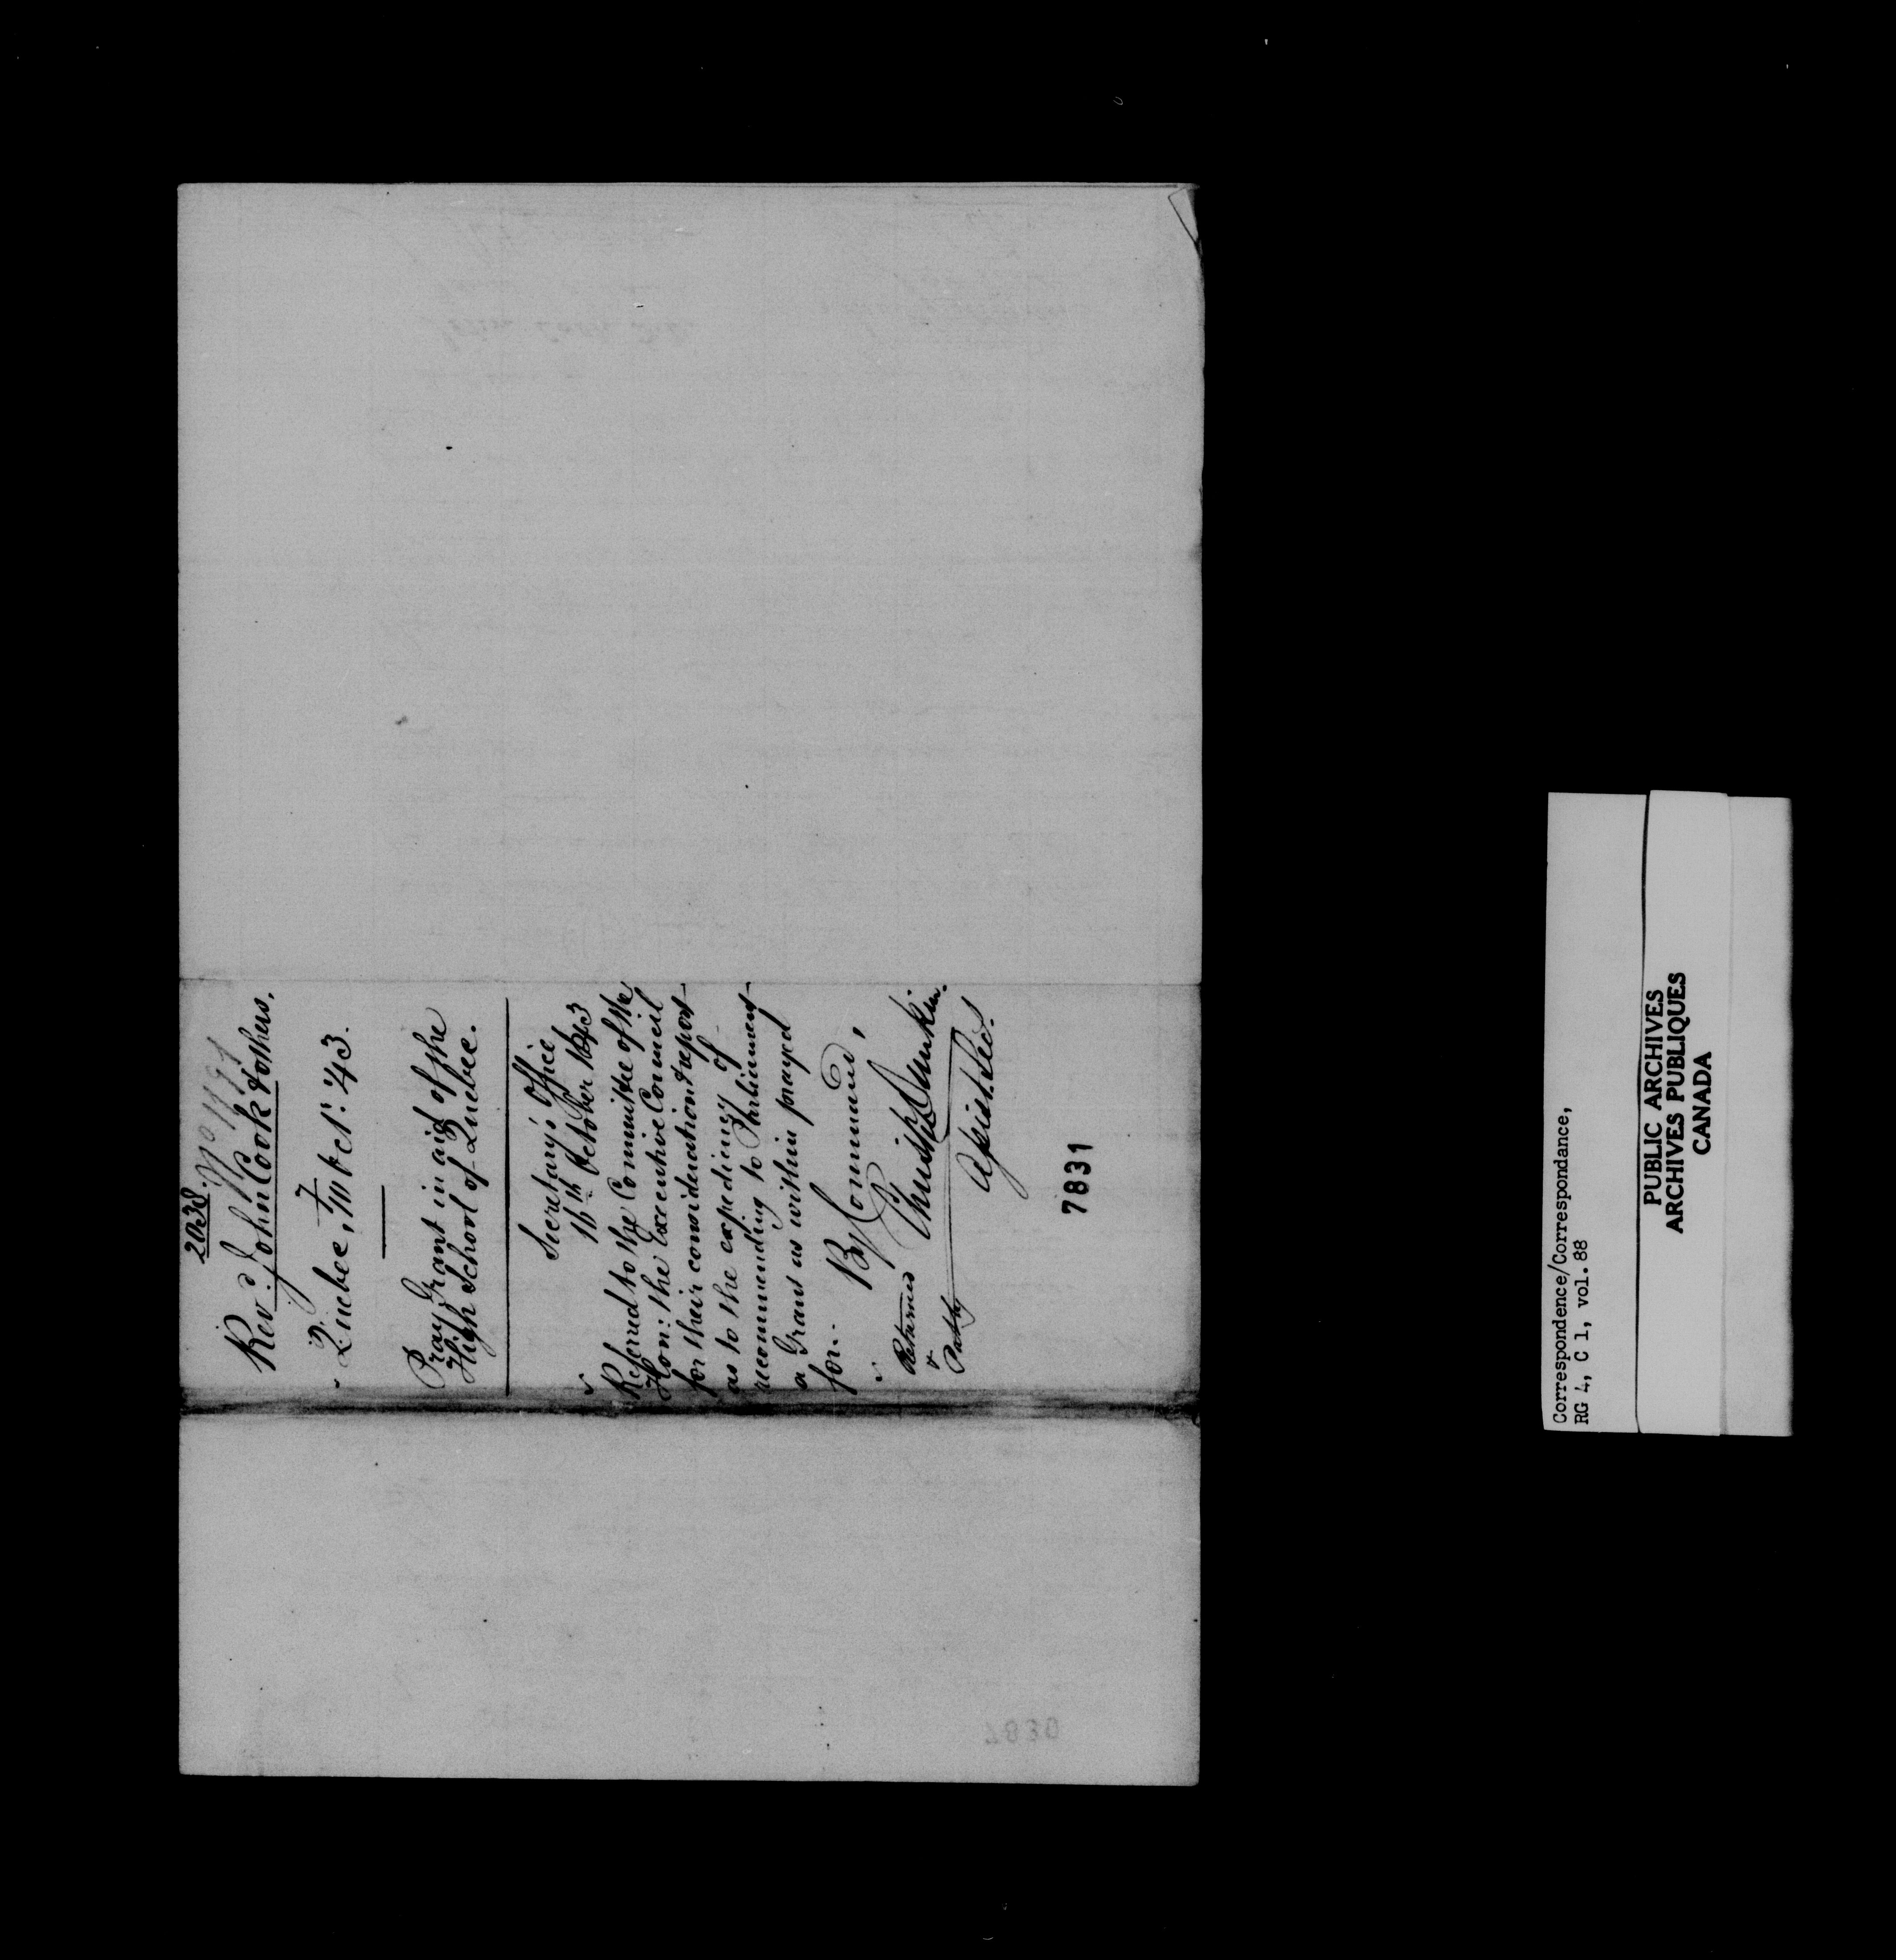 2038. No
Revd. John Cook & others.
Quebec, 7 Octr. '43.
Pray Grant in aid of the
High School of Quebec.
Secretary's Office
16th October 1843
Referred to the Committee of the
Hon: the Executive Council
for their consideration & report
as to the expediency of
recommending to Parliament
a Grant as within prayed
for.
By Command,
Christr Dunkin.
Assist. Sec.
Returned
Patty
7831
7830
Correspondence/Correspondance,
RG 4, C 1, vol. 88
PUBLIC ARCHIVES
ARCHIVES PUBLIQUES
CANADA